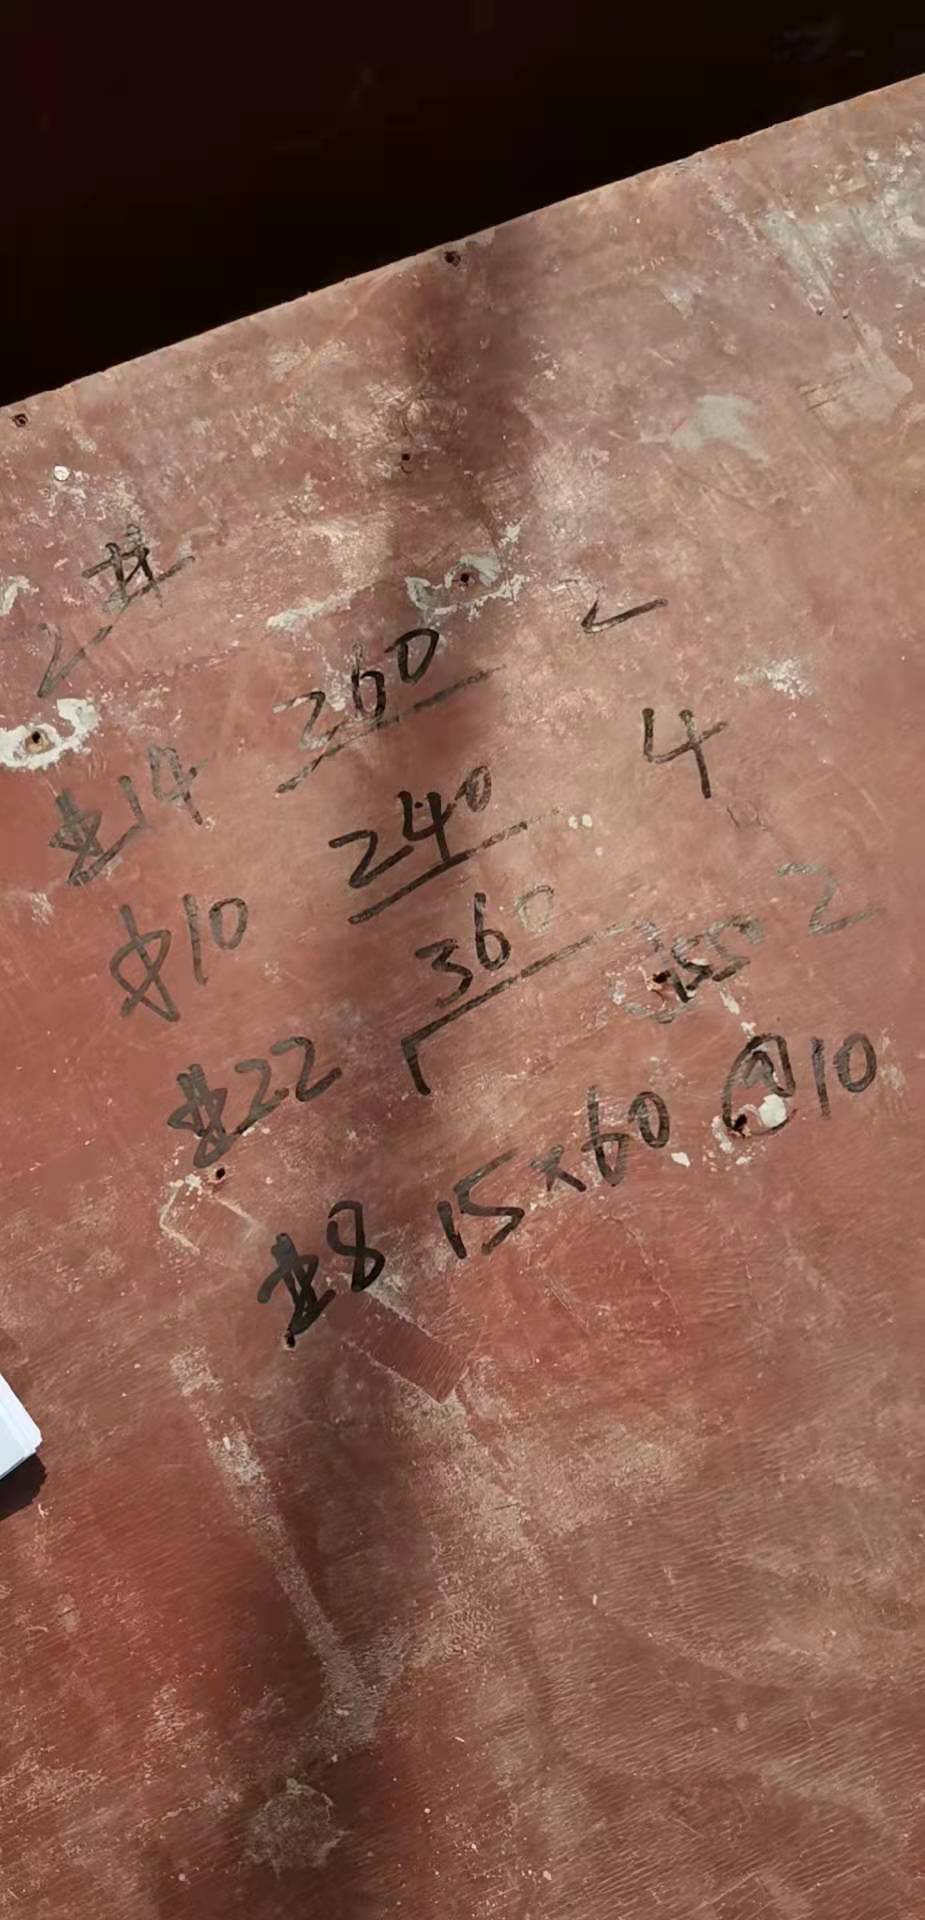 2#
⏀14 260 2
⏀10 240 4
⏀22 360 355 2
⏀8 15×60 @10